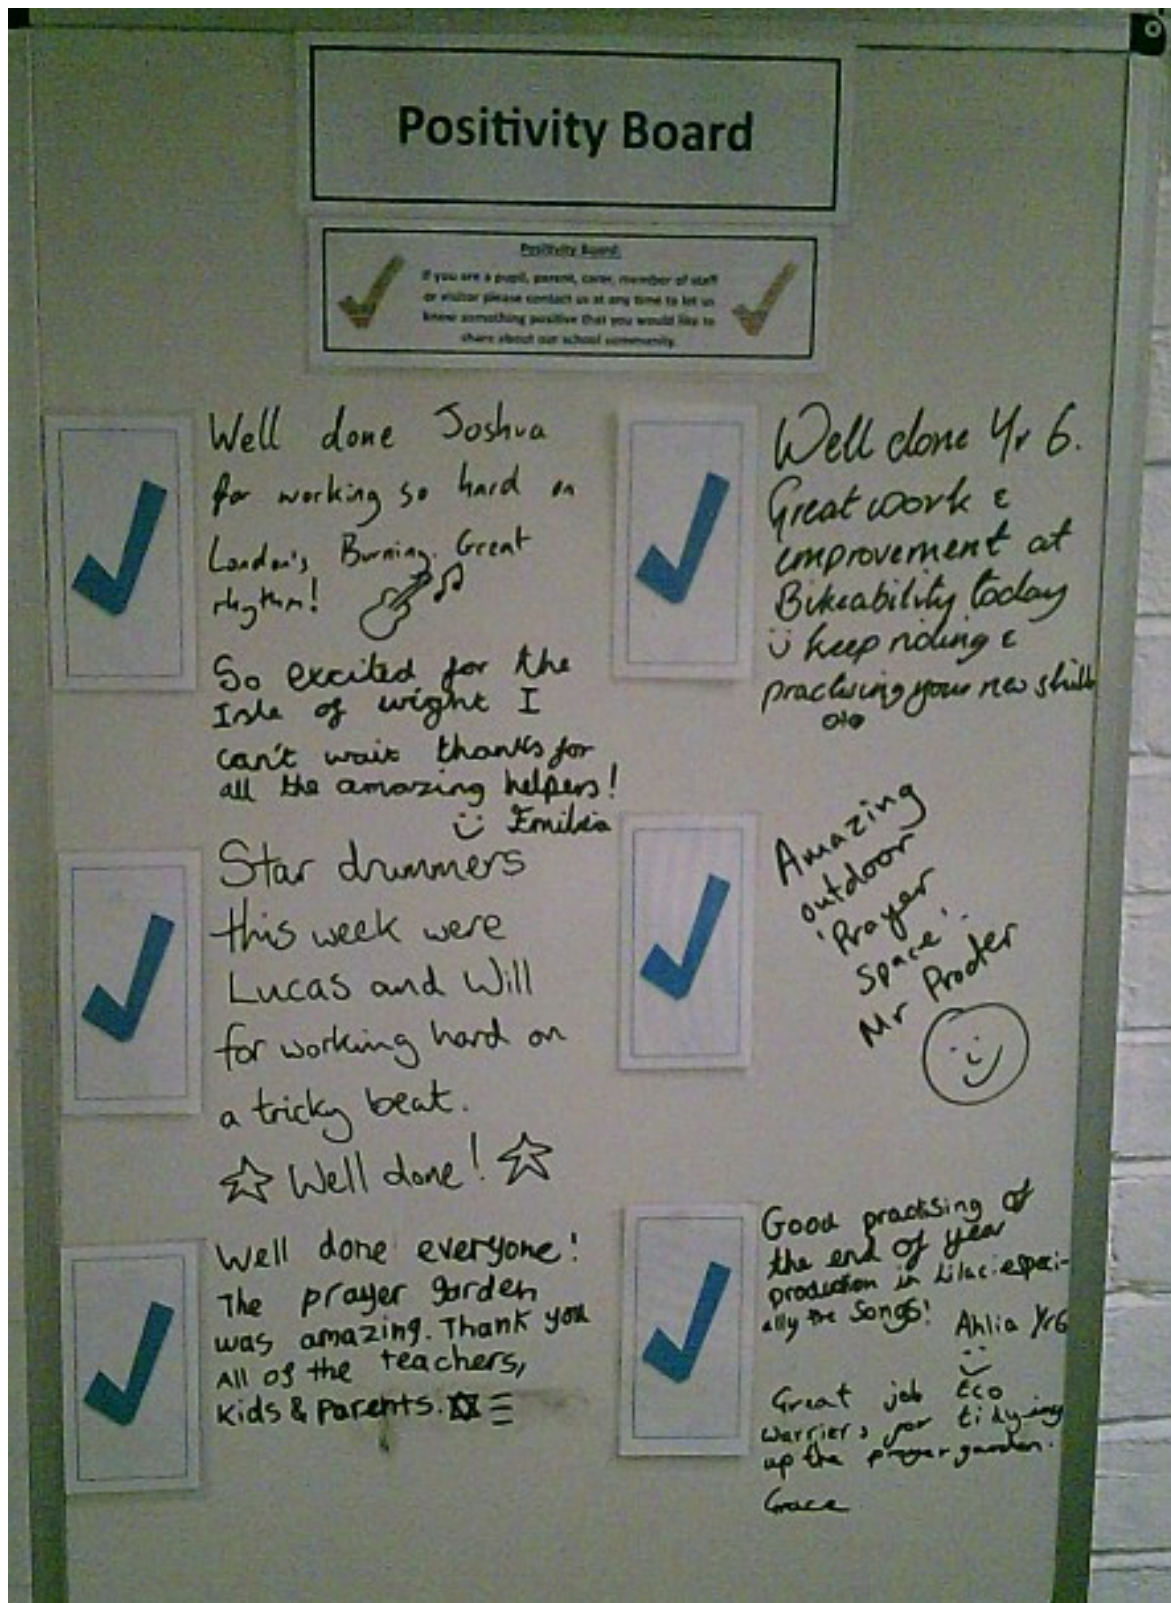 Positivity Board
Positivity Board:
If you are a pupil, parent, carer, member of staff
or visitor please contact us at any time to let us
know something positive that you would like to
share about our school community.
Well done Joshua
for working so hard on
London's Burning. Great
rhythm!
So excited for the
Isle of wight I
can't wait thanks for
all the amazing helpers!
Emilia
Star drummers
this week were
Lucas and Will
for working hard on
a tricky beat.
Well done!
Well done everyone!
The prayer garden
was amazing. Thank you
All of the teachers,
kids & parents.
Well done Yr 6.
Great work &
improvement at
Bikeability today
keep riding &
practising your new skills
Amazing
outdoor
'Prayer
Space'.
Mr Procter
Good practising of
the end of year
production in Lilac especi-
ally the songs!
Ahlia Yr6
Great job Eco
warriers for tidying
up the prayer garden.
Grace